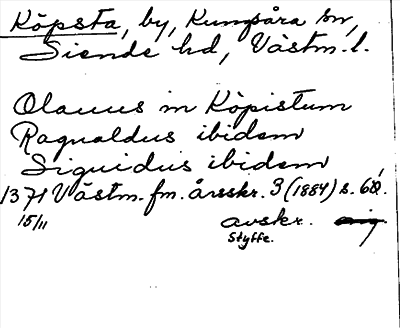 Köpsta, by, Kungsåra sn,
Siende hd, Västm. l.
Olauus in Köpistum
Ragualdus ibidem
Siguidus ibidem
1371 Västm. fm. årsskr. 3 (1884) s. 68.
15/11 avskr.
Styffe.